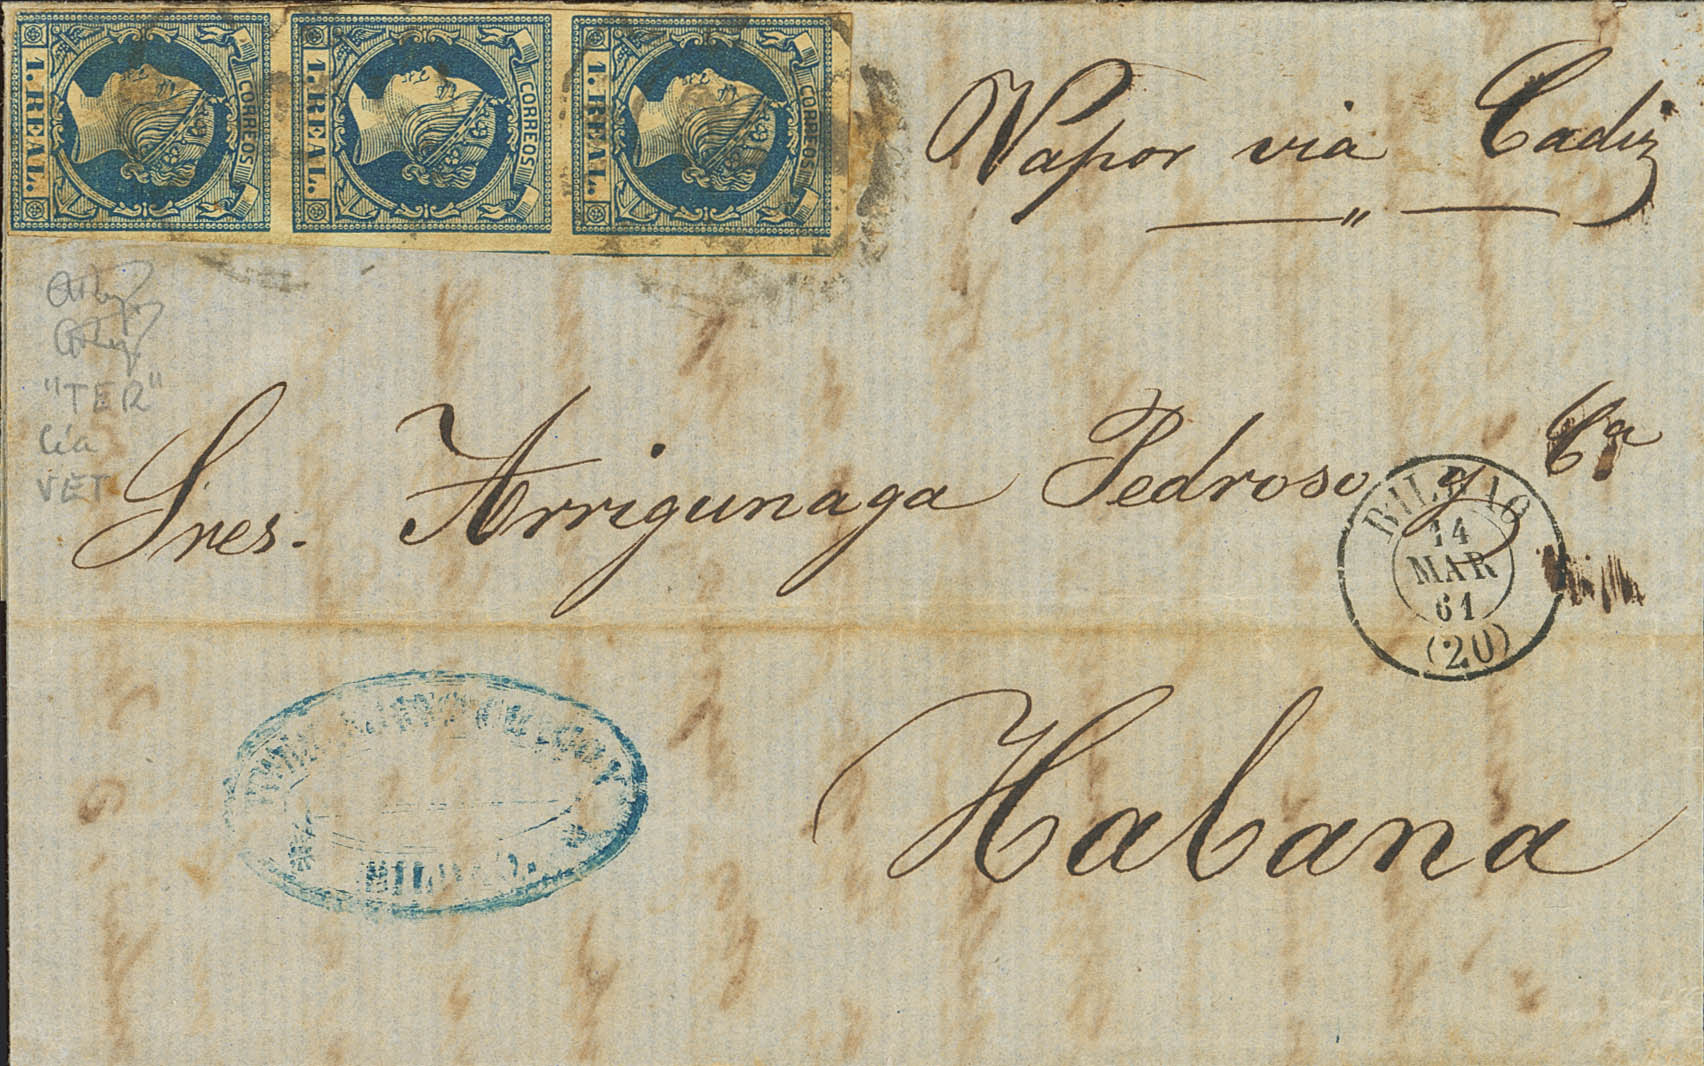 1. REAL. CORREOS
1. REAL. CORREOS
1. REAL. CORREOS
Vapor via Cadiz
"TER"
Cía
VET
Sres. Arrigunaga Pedroso y Cª
BILBAO
14
MAR
61
(20)
BILBAO.
Habana